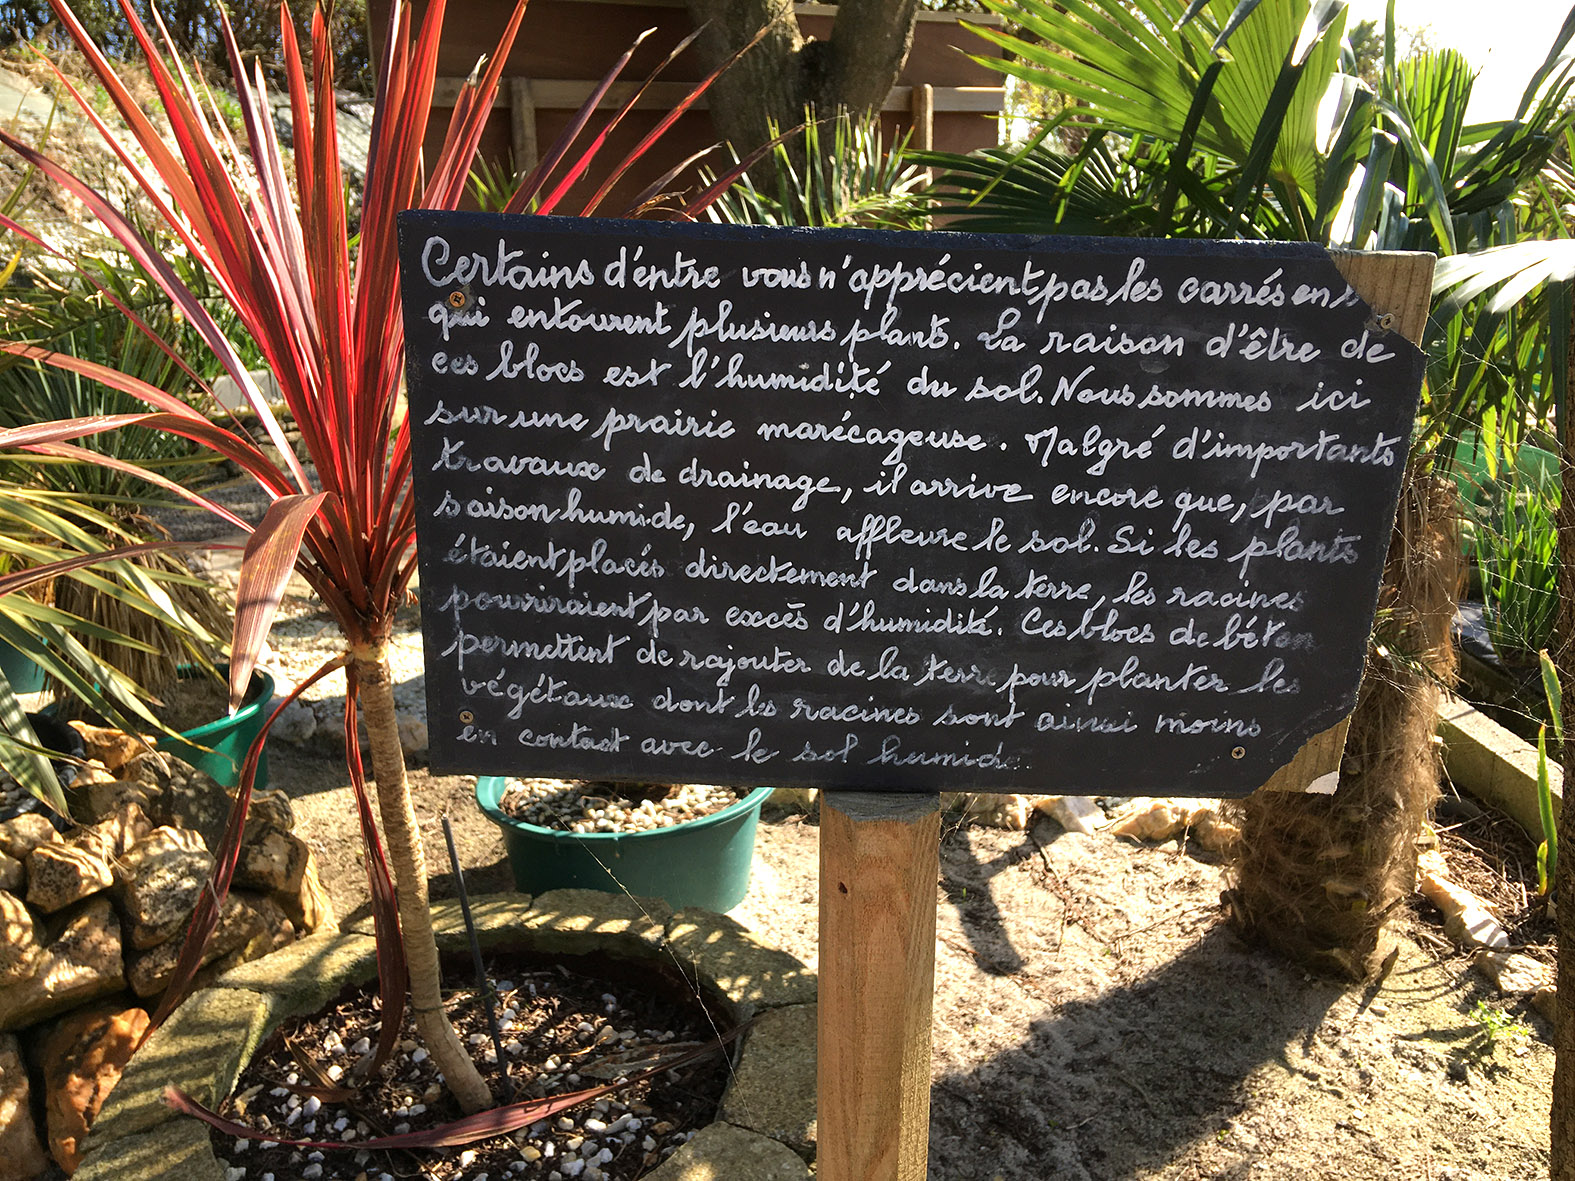 Certains d'entre vous n'apprécient pas les carrés en
qui entourent plusieurs plants. La raison d'être de
ces blocs est l'humidité du sol. Nous sommes ici
sur une prairie marécageuse. Malgré d'importants
travaux de drainage, il arrive encore que, par
saison humide, l'eau affleure le sol. Si les plants
étaient placés directement dans la terre, les racines
pourriraient par excès d'humidité. Ces blocs de béton
permettent de rajouter de la terre pour planter les
végétaux dont les racines sont ainsi moins
en contact avec le sol humide.